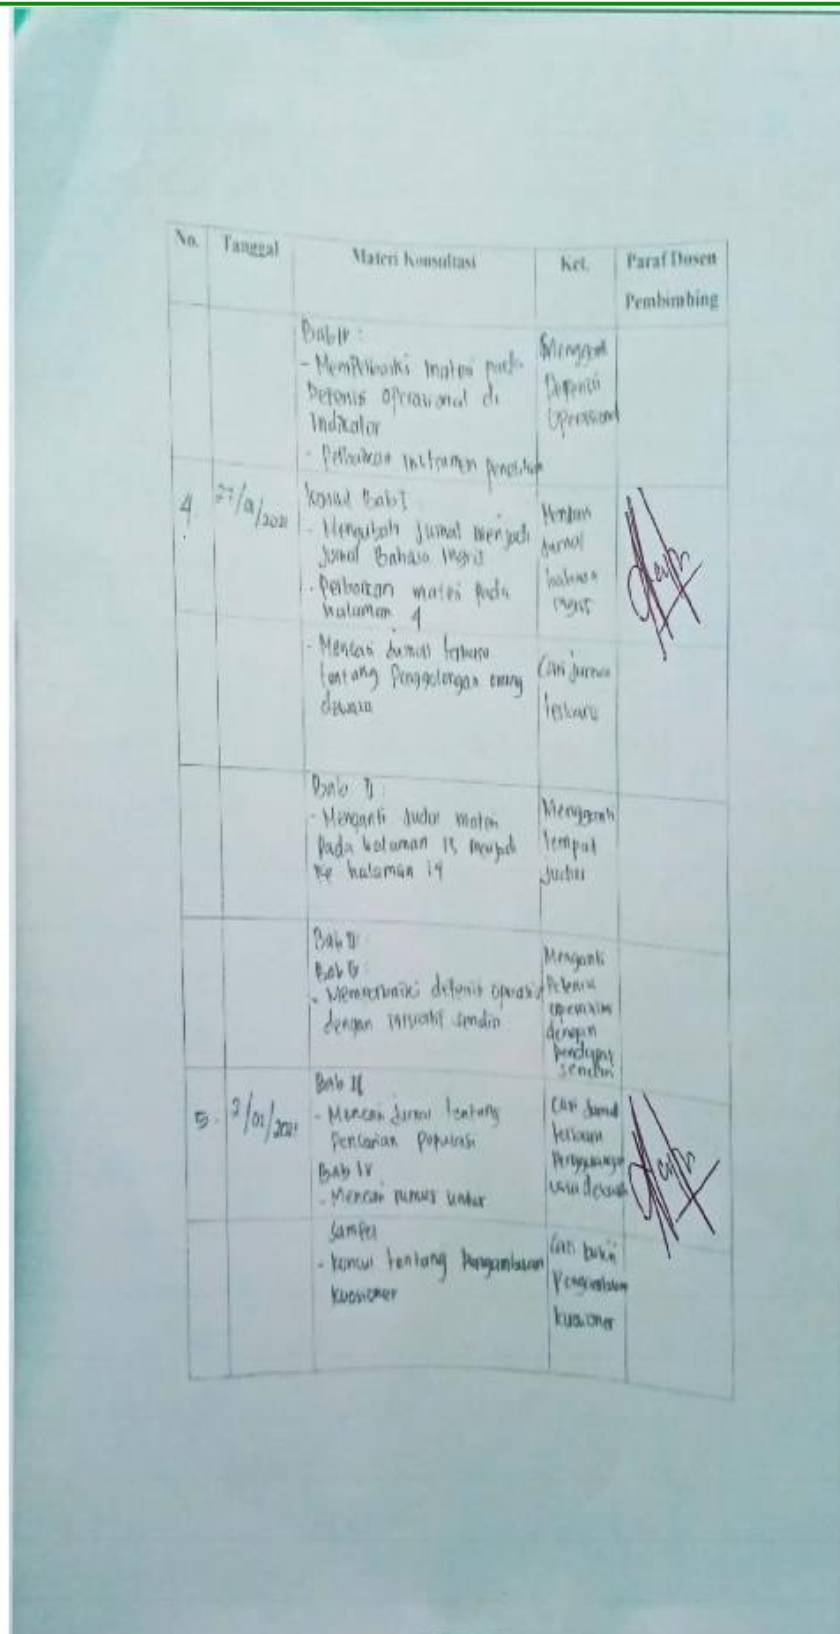 No. Tanggal Materi Konsultasi Ket. Paraf Dosen
Pembimbing
Bab IV :
- Memperbaiki materi pada
Definisi operasional di
Indikator
- Perbaikan instrumen penelitian
Definisi
Operasional
4. /2021
Konsul Bab I
- Mengubah Jurnal menjadi
Jurnal Bahasa Ingris
- Perbaikan materi pada
halaman 4
Jurnal
bahasa
- Mencari Jurnal terbaru
tentang Penggolongan orang
dewasa
Cari Jurnal
terbaru
Bab II
- Menganti Judul materi
Pada halaman 15 menjadi
Ke halaman 14
Mengganti
tempat
Judul
Bab II:
Bab IV:
- Memperbaiki definisi
dengan sendiri
Menganti
Definisi
dengan
Pendapat
sendiri
5. 2/02/2021
Bab II
- Mencari Jurnal tentang
Pencarian Populasi
Bab IV
- Mencari rumus untuk
Sampel
- Konsul tentang Pengambilan
Kuesioner
Cari Jurnal
terbaru
usia dewasa
Cari buku
Pengambilan
kuesioner